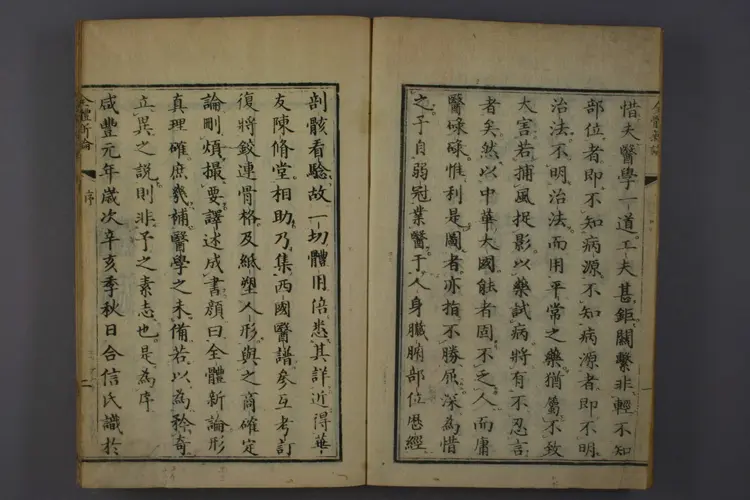 惜夫醫學一道工夫甚鉅關繫非輕不知
部位者即不知病源不知病源者即不明
治法不明治法而用平常之藥猶屬不致
大害若捕風捉影以藥試病將有不忍言
者矣然以中華大國能者固不乏人而庸
醫碌碌惟利是圖者亦指不勝屈深為惜
之予自弱冠業醫于人身臟腑部位歷經
剖骸看驗故一切體用倍悉其詳近得華
友陳脩堂相助乃集西國醫譜參互考訂
復將鉸連骨格及紙塑人形與之商確定
論刪煩撮要譯述成書顏曰全體新論形
真理確庶幾補醫學之未備若以為矜奇
立異之說則非予之素志也是為序
咸豐元年歲次辛亥季秋日合信氏識於
全體新論 序 二